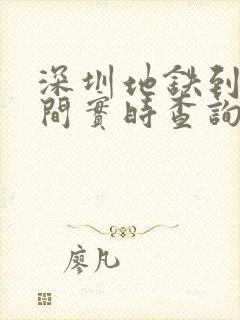 深圳地鉄到
間實時查詢
廖凡